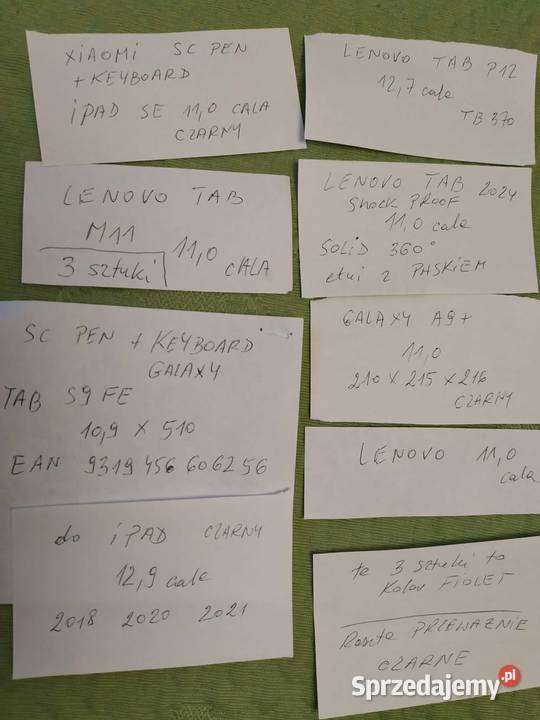 XIAOMI SC PEN
+ KEYBOARD
iPAD SE 11,0 CALA
CZARNY
LENOVO TAB P12
12,7 cale
TB 370
LENOVO TAB
M11
3 sztuki
11,0 CALA
LENOVO TAB 2024
SHOCK PROOF
11,0 cale
SOLID 360°
etui z PASKIEM
SC PEN + KEYBOARD
GALAXY
TAB S9 FE
10,9 X 510
EAN 9319456606256
GALAXY A9+
11,0
210 X 215 X 216
CZARNY
LENOVO 11,0
cala
do iPAD CZARNY
12,9 cale
2018 2020 2021
te 3 sztuki to
Kolor FIOLET
Reszta PRZEWAŻNIE
CZARNE
Sprzedajemy.pl